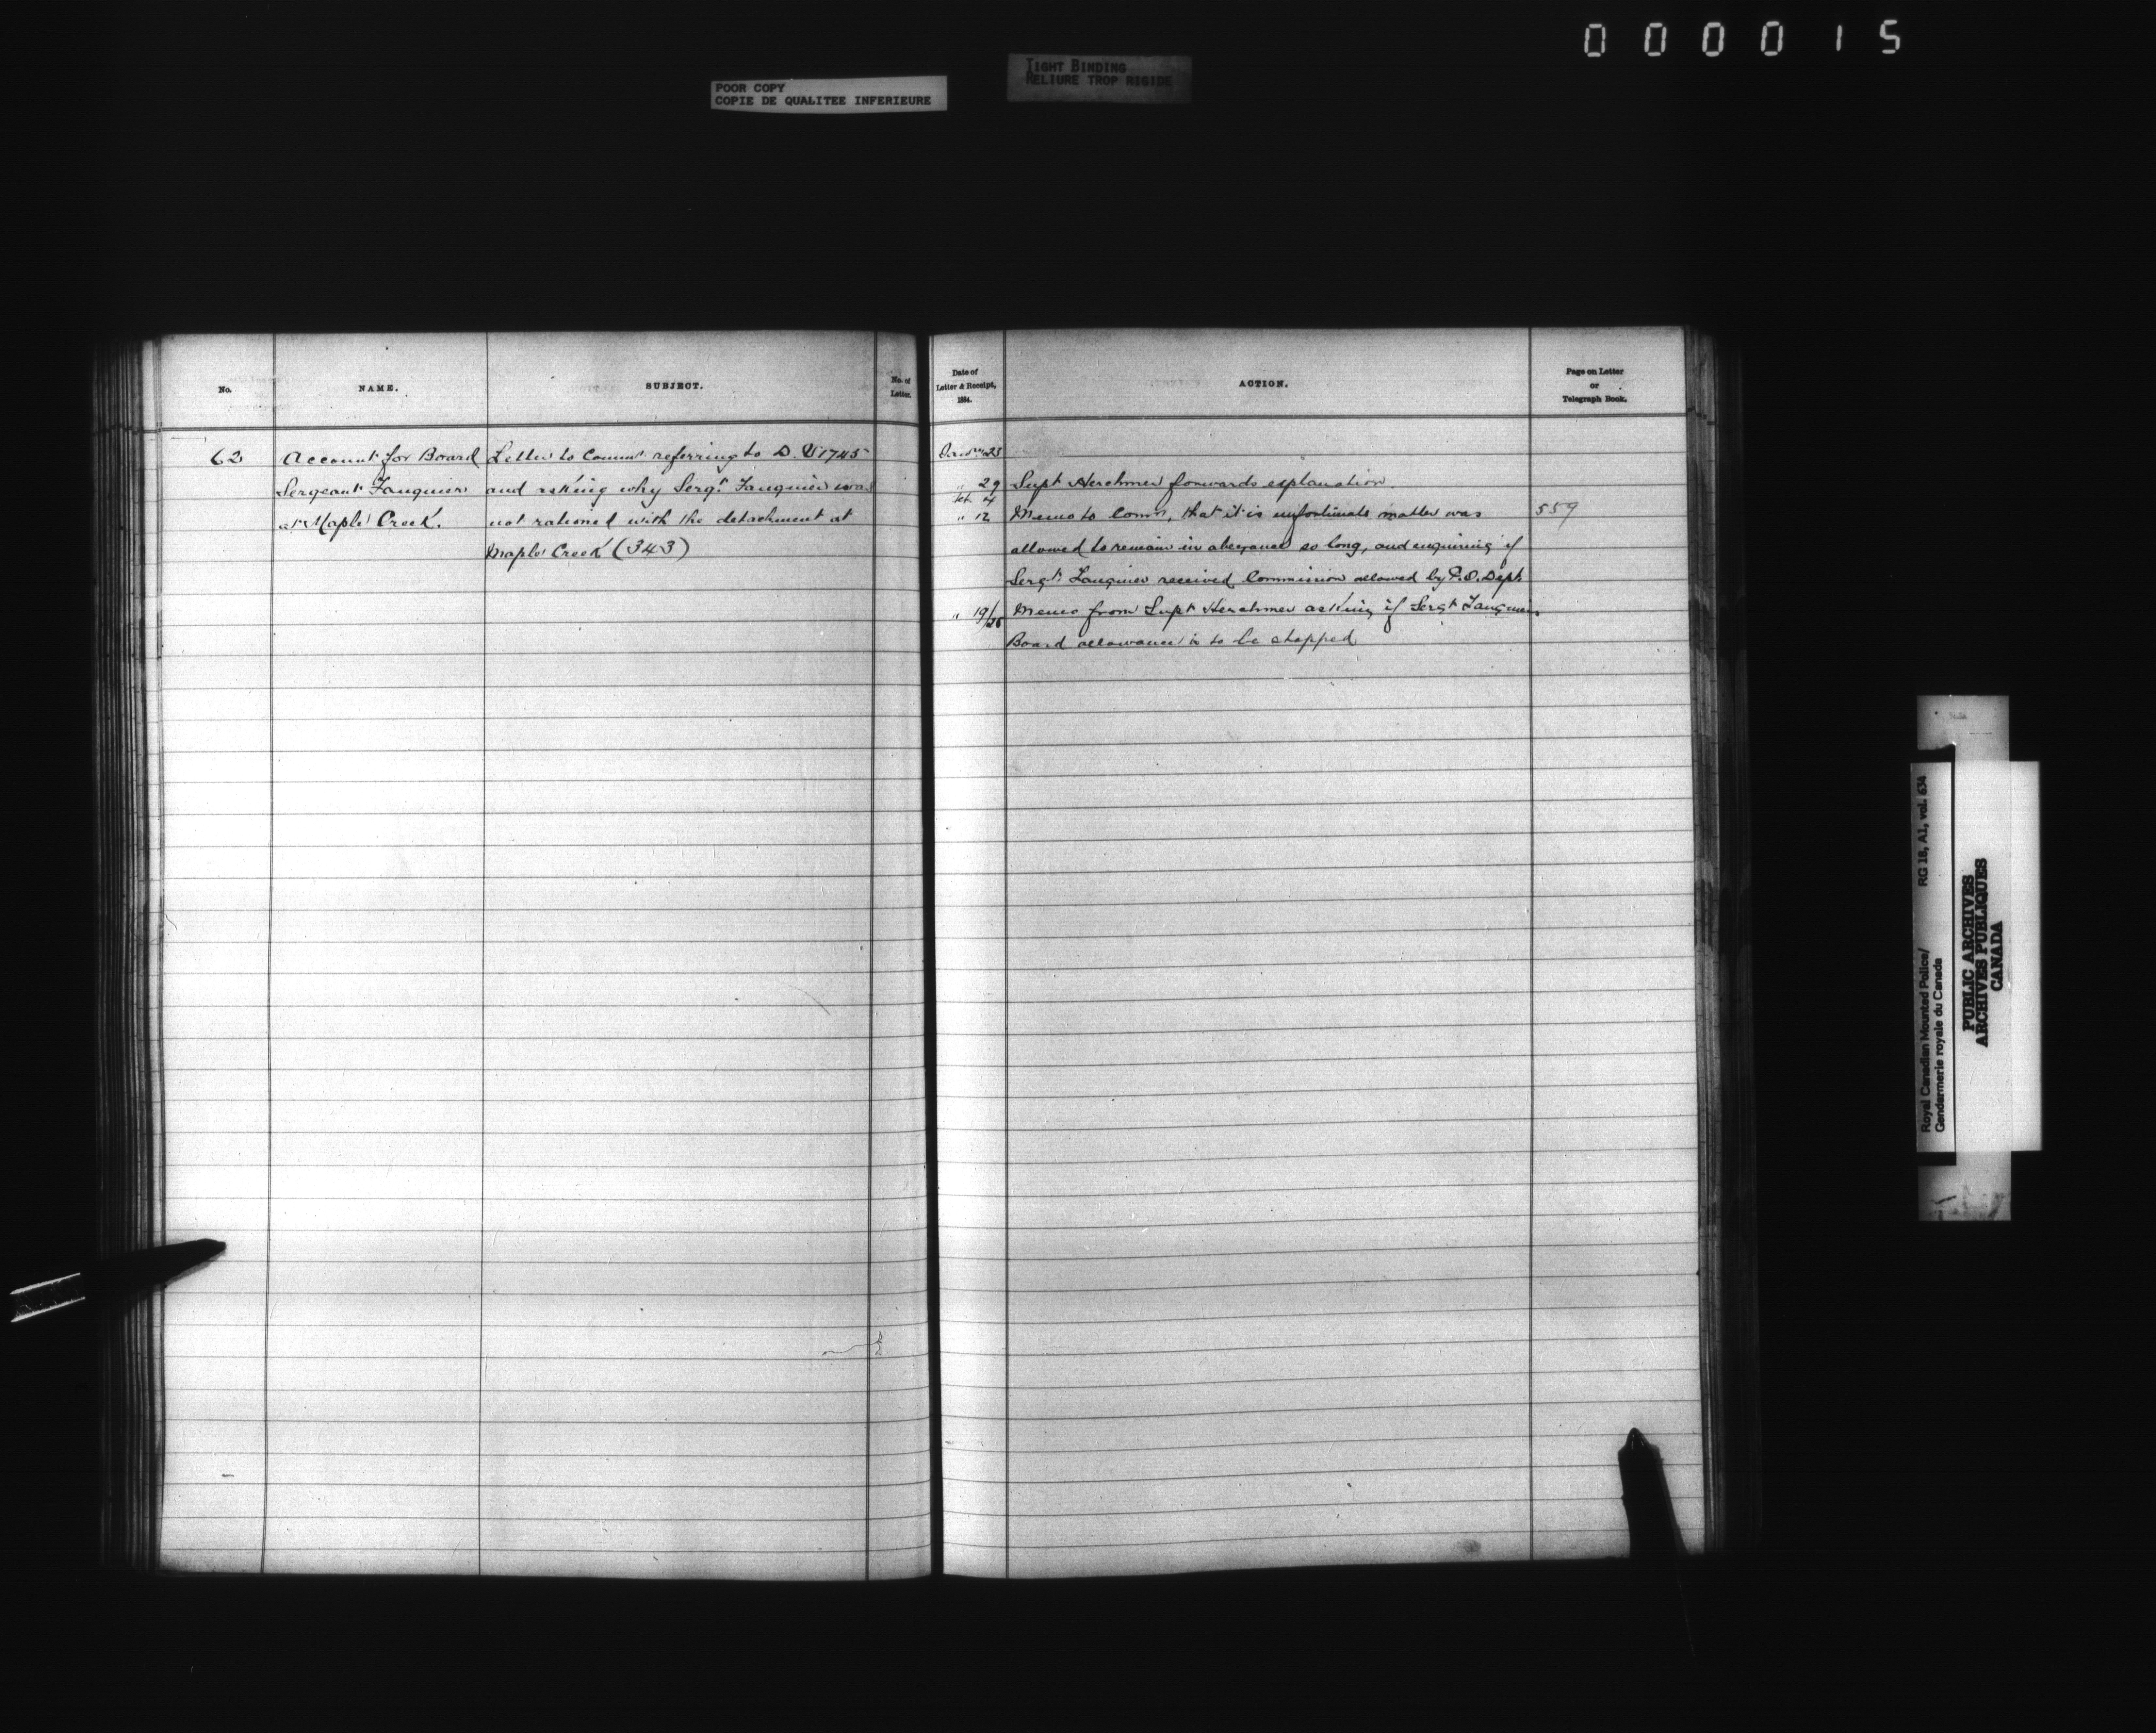 000015
POOR COPY
COPIE DE QUALITEE INFERIEURE
TIGHT BINDING
RELIURE TROP RIGIDE
No.
NAME.
SUBJECT.
No. of
Letter.
Date of
Letter & Receipt,
1884.
ACTION.
Page on Letter
or
Telegraph Book.
62
Account for Board
Sergeant Fauquier
at Maple Creek.
Letter to Commr referring to D. 1745
and asking why Sergt. Fauquier was
not rationed with the detachment at
Maple Creek (343)
23
" 29
Supt Herchmer forwards explanation.
Feb 4
" 12
Memo to Commr, that it is unfortunate matter was
559
allowed to remain in abeyance so long, and enquiring if
Sergt. Fauquier received Commission allowed by P.O. Dept.
" 19/26
Memo from Supt Herchmer asking if Sergt Fauquier
Board allowance is to be stopped
Royal Canadian Mounted Police/
Gendarmerie royale du Canada
RG 18, A1, vol. 634
PUBLIC ARCHIVES
ARCHIVES PUBLIQUES
CANADA